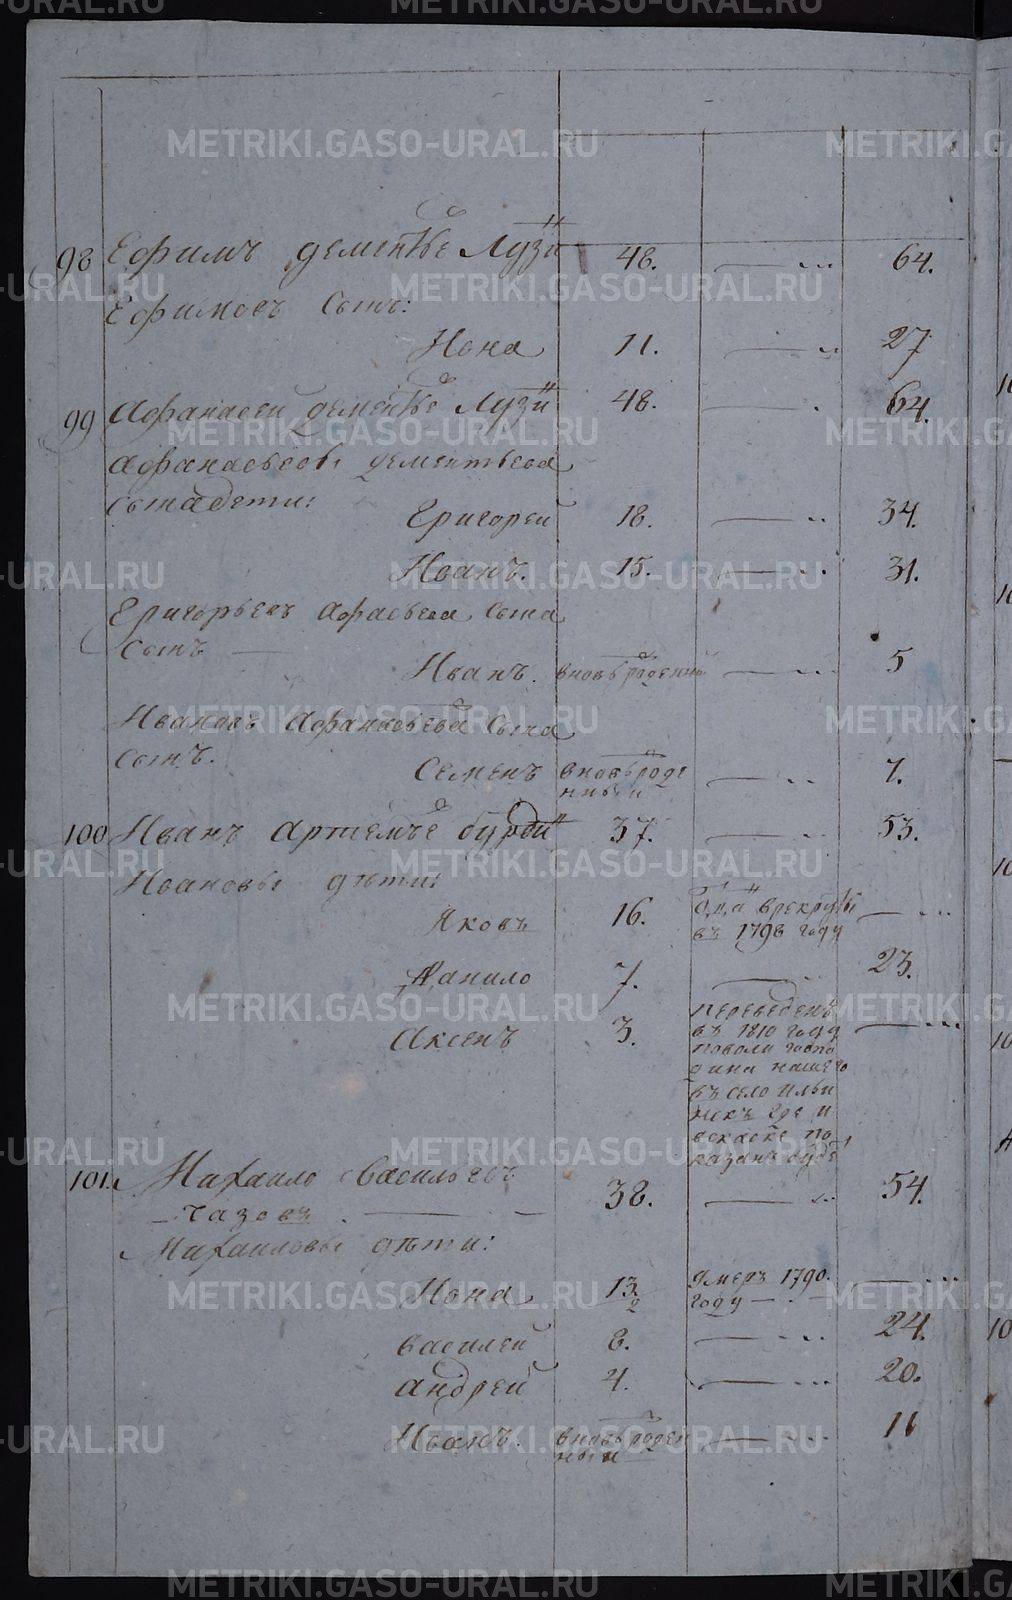 98 Ефимъ дементье Лузи 48. 64.
Ефимовъ сынъ:
Иона 11. 27
99 Афанасеи дементье Лузи 48. 64.
Афанасьевы дементьева
сына дети:
Григореи 18. 34.
Иванъ. 15. 31.
Григорьевъ Афасьева сына
сынъ
Иванъ. вновь роденны 5
Ивановъ Афанасьева сына
сынъ.
Семенъ вновь роде 7.
нныи
100 Иванъ Артемье 37. 53.
Ивановы дѣти:
Яковъ 16. врекруты
въ 1798 году
Данило 7. 23.
Аксенъ 3. Переведенъ
въ 1810 году
поволи госпо
дина нашего
въ село Ильи
нскъ где и
вскаске по
казанъ будетъ
101. Михаило Васильевъ 38. 54.
Чазовъ
Михаиловы дѣти:
Иона 13 умеръ 1790.
2 году
Василеи 8. 24.
Андреи 4. 20.
Иванъ. вновь роден 11
ныи
METRIKI.GASO-URAL.RU